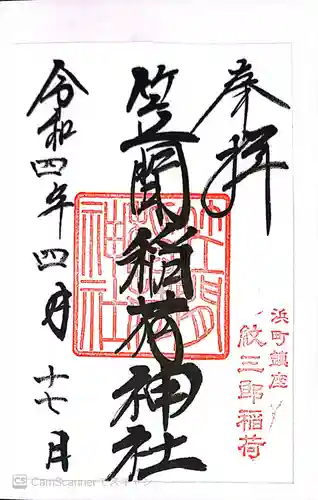 奉拝
浜町鎮座
紋三郎稲荷
笠間稲荷神社
令和四年四月十七日
CS CamScanner でスキャン